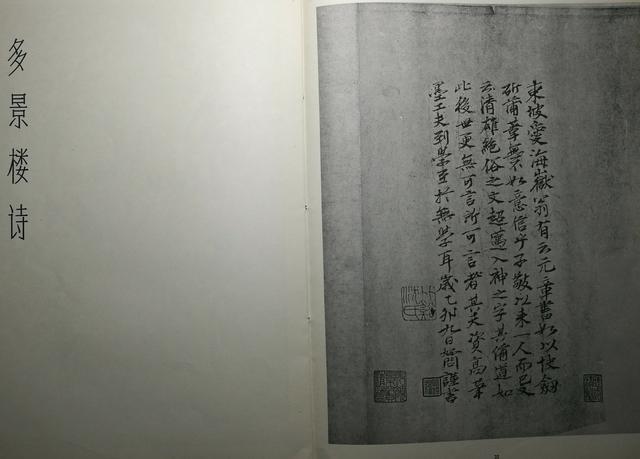 多景楼诗
東坡愛海嶽翁有云元章書如以快劍
斫蒲葦無不如意信乎子敬以來一人而已又
云清雄絕俗之文超邁入神之字其備道如
此後世更無可言所可言者其天資高筆
墨工夫到學至於無學耳歲乙卯九日謹書